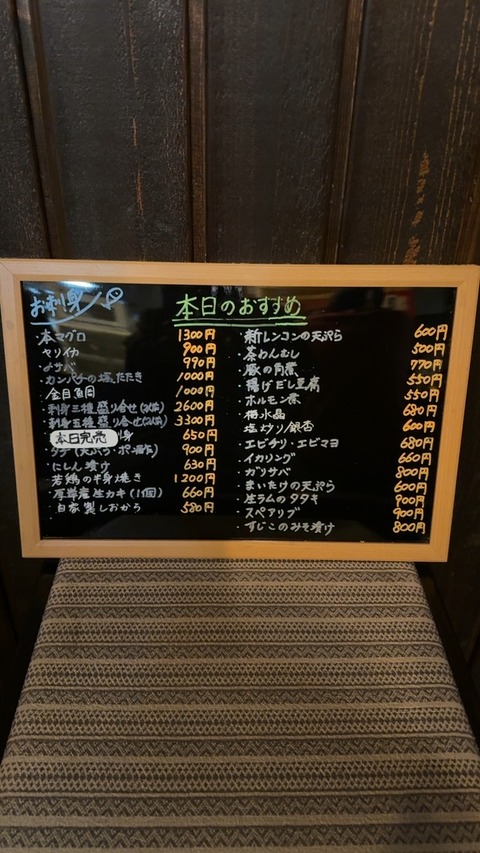 お刺身
本日のおすすめ
本マグロ 1300円
ヤリイカ 900円
〆サバ 990円
カンパチの塩たたき 1000円
金目鯛 1000円
刺身三種盛り合せ(2人前) 2600円
刺身五種盛り合せ(2人前) 3300円
本日完売 身 650円
タチ(天ぷら・ポン酢) 900円
にしん漬け 630円
若鶏の半身焼き 1200円
厚岸産生カキ(1個) 660円
自家製しおから 580円
・新レンコンの天ぷら 600円
・茶わんむし 500円
・豚の角煮 770円
・揚げだし豆腐 550円
・ホルモン煮 550円
・梅水晶 680円
・塩炒り銀杏 600円
・エビチリ・エビマヨ 680円
・イカリング 660円
・ガリサバ 800円
・まいたけの天ぷら 600円
・生ラムのタタキ 900円
・スペアリブ 900円
・すじこのみそ漬け 800円